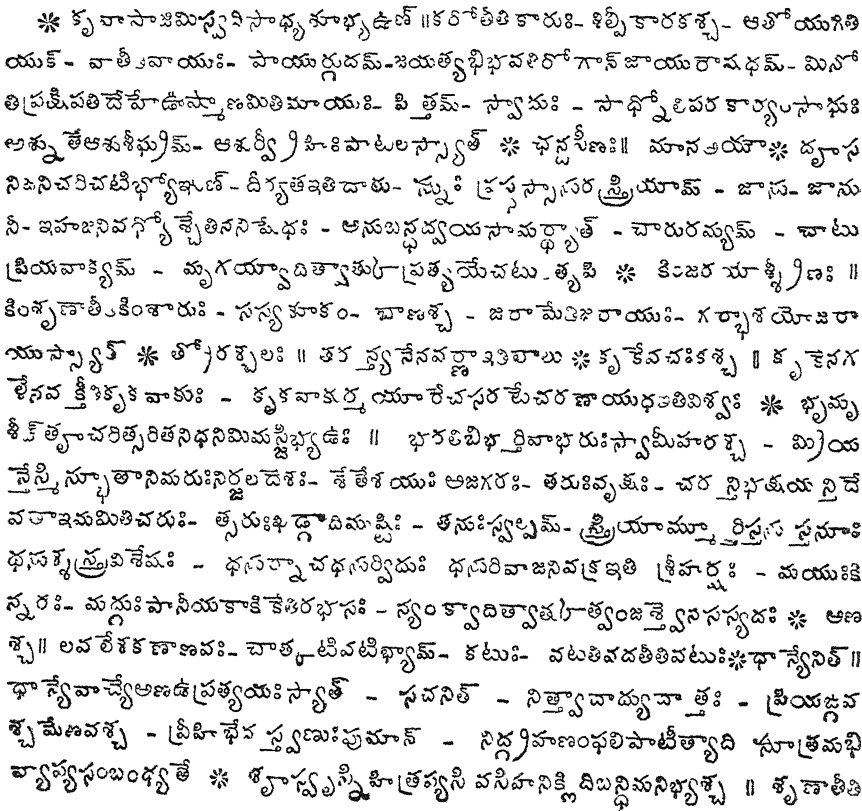 ❋ కృవాపాజిమిస్వదిసాధ్యశూభ్యఉణ్ ॥ కరోతీతి కారుః- శిల్పీకారకశ్చ- ఆతోయుగితి
యుక్- వాతీతివాయుః- పాయుర్గుదమ్-జయత్యభిభవతిరోగాన్ జాయురౌషధమ్- మినో
తిప్రక్షిపతిదేహేఊష్మాణమితిమాయుః- పిత్తమ్- స్వాదుః - సాధ్నోతిపరకార్యంసాధుః
అశ్నుతేఆశుశీఘ్రమ్- ఆశుర్వ్రీహిఃపాటలస్స్యాత్ ❋ ఛన్దసీణః॥ మానఆయౌ ❋ దౄస
నిజనిచరిచటిభ్యోఞుణ్- దీర్యతఇతిదారు- స్నుః ప్రస్థస్సానురస్త్రియామ్ - జాను- జాను
నీ- ఇహజనివధ్యోశ్చేతిననిషేధః - అనుబన్ధద్వయసామర్థ్యాత్ - చారురమ్యమ్ - చాటు
ప్రియవాక్యమ్ - మృగయ్వాదిత్వాత్కుప్రత్యయేచటు-త్యపి ❋ కింజరయోశ్శ్రిణః ॥
కింశృణాతీతికింశారుః- సస్యశూకం- బాణశ్చ - జరామేతిజరాయుః- గర్భాశయోజరా
యుస్స్యాత్ ❋ త్రోరశ్చలః ॥ తరన్త్యనేనవర్ణాఇతితాలు ❋ కృకేవచఃకశ్చ ॥ కృకేనగ
ళేనవక్తీతికృకవాకుః - కృకవాకుర్మయూరేచసరటేచరణాయుధఇతివిశ్వః ❋ భృమృ
శీఙ్తౄచరిత్సరితనిధనిమిమస్జిభ్యఉః ॥ భరతిబిభర్తివాభరుఃస్వామీహరశ్చ - మ్రియ
న్తేస్మిన్భూతానిమరుఃనిర్జలదేశః- శేతేశయుః అజగరః- తరుఃవృక్షః- చరన్తిభక్షయన్తిదే
వతాఇమమితిచరుః- త్సరుఃఖడ్గాదిముష్టిః - తనుఃస్వల్పమ్- స్త్రియామ్మూర్తిస్తనుస్తనూః
ధనుశ్శస్త్రవిశేషః - ధనునాచధనుర్విదుః ధనురివాజనివక్రఇతి శ్రీహర్షః - మయుఃకి
న్నరః- మద్గుఃపానీయకాకికేతిరభసః- న్యంక్వాదిత్వాత్కుత్వంజశ్త్వేనసస్యదః ❋ అణ
శ్చ॥ లవలేశకణాణవః- చాత్కటివటిభ్యామ్- కటుః- వటతివదతీతివటుః❋ధాన్యేనిత్॥
ధాన్యేవాచ్యేఅణఉప్రత్యయఃస్యాత్ - సచనిత్ - నిత్త్వాదాద్యుదాత్తః - ప్రియఙ్గవ
శ్చమేణవశ్చ - వ్రీహిభేదస్త్వణుఃపుమాన్ - నిద్గ్రహణంఫలిపాటీత్యాది సూత్రమభి
వ్యాప్యసంబంధ్యతే ❋ శౄస్వృస్నిహిత్రప్యసి వసిహనిక్లిదిబన్ధిమనిభ్యశ్చ ॥ శృణాతీతి